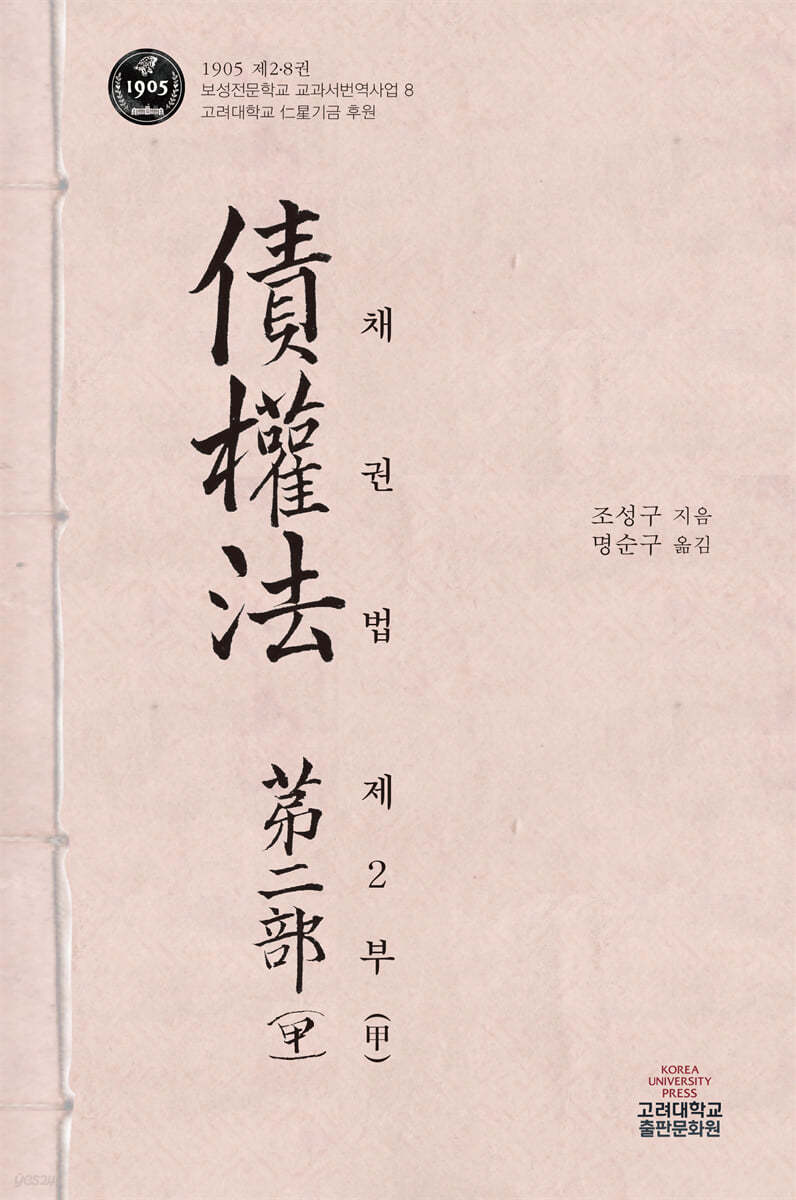 1905
1905 제2·8권
보성전문학교 교과서번역사업 8
고려대학교 仁星기금 후원
債權法
第二部
(甲)
채권법 제2부(甲)
조성구 지음
명순구 옮김
KOREA
UNIVERSITY
PRESS
고려대학교
출판문화원
yes24